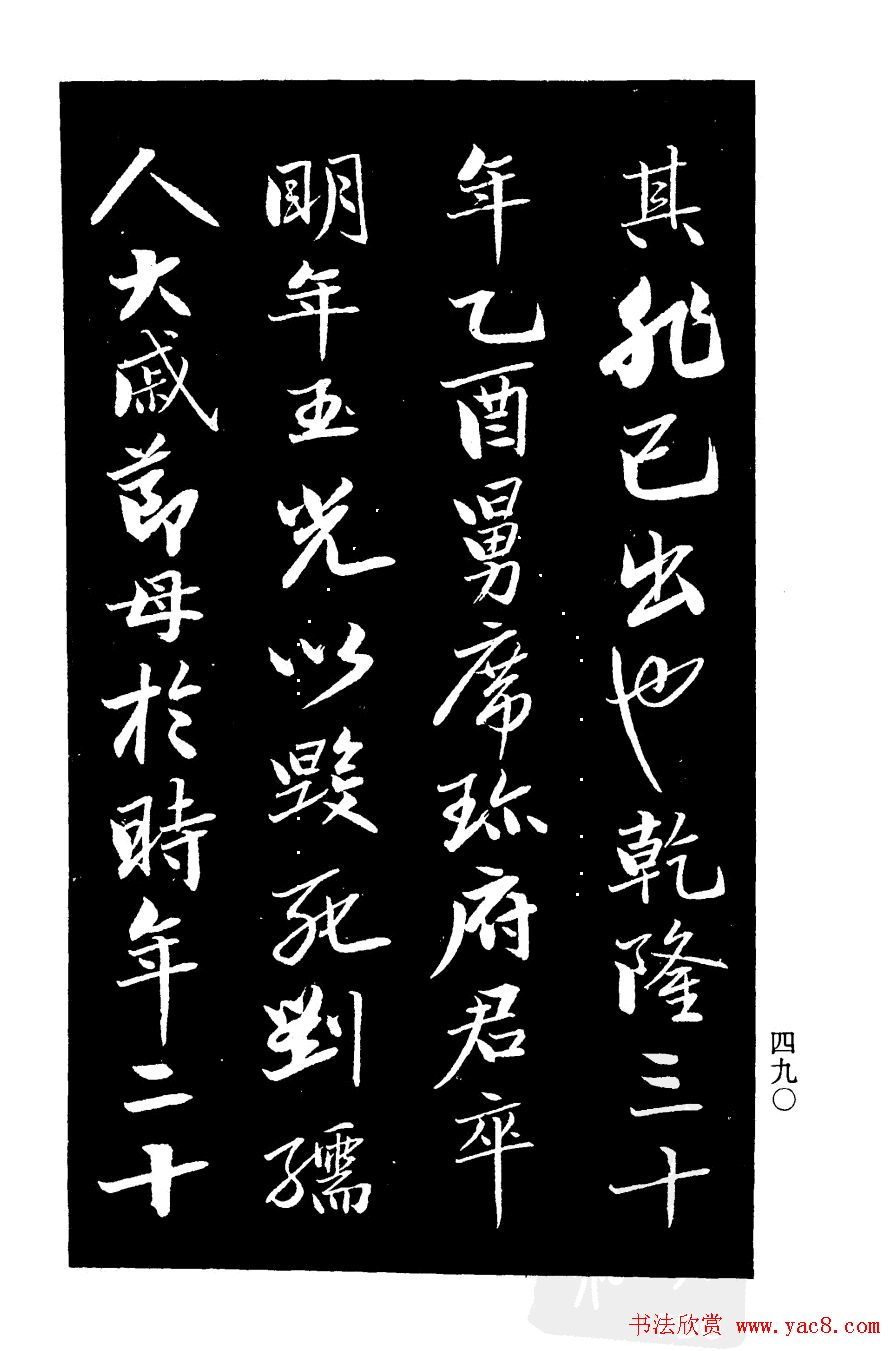 其非己出也乾隆三十
年乙酉舅席珍府君卒
明年玉光以毀死劉孺
人大戚節母於時年二十
四九〇
书法欣赏 www.yac8.com